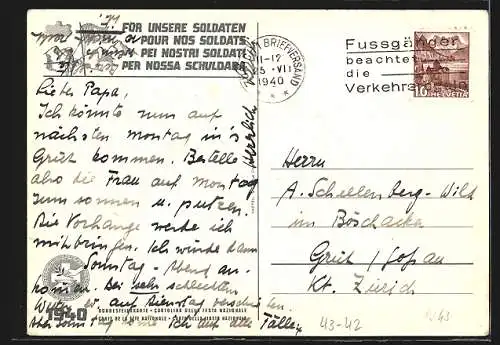 FÜR UNSERE SOLDATEN
POUR NOS SOLDATS
PEI NOSTRI SOLDATI
PER NOSSA SCHULDADA
BRIEFVERSAND
11-12
VII
1940
Fussgänger
beachtet
die
Verkehrs
10 HELVETIA
Lieber Papa,
Ich könnte nun auf
nächsten Montag in's
Grüt kommen. Bestelle
also die Frau auf Montag
zum sonnen u. putzen.
Die Vorhänge werde ich
mitbringen. Ich würde dann
Sonntag-Abend an-
kommen. Bei sehr schlechtem
Wetter ev. auf Dienstag verschieben.
Aber Sonntag komme ich auf alle Fälle.
Herrlich
Herrn
A. Schellenberg-Wild
im Böschacker
Grüt / Gossau
Kt. Zürich
1940
BUNDESFEIERKARTE - CARTOLINA DELLA FESTA NAZIONALE
CARTE DE LA FÊTE NATIONALE
43-42